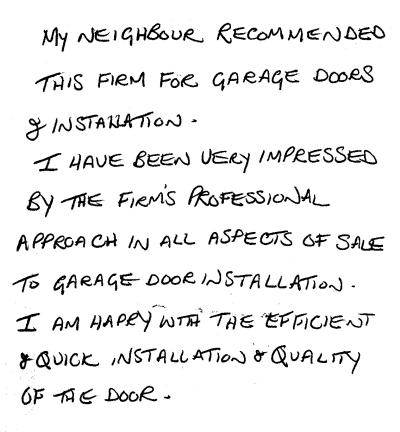 MY NEIGHBOUR RECOMMENDED
THIS FIRM FOR GARAGE DOORS
& INSTALLATION.
I HAVE BEEN VERY IMPRESSED
BY THE FIRM'S PROFESSIONAL
APPROACH IN ALL ASPECTS OF SALE
TO GARAGE DOOR INSTALLATION.
I AM HAPPY WITH THE EFFICIENT
& QUICK INSTALLATION & QUALITY
OF THE DOOR.